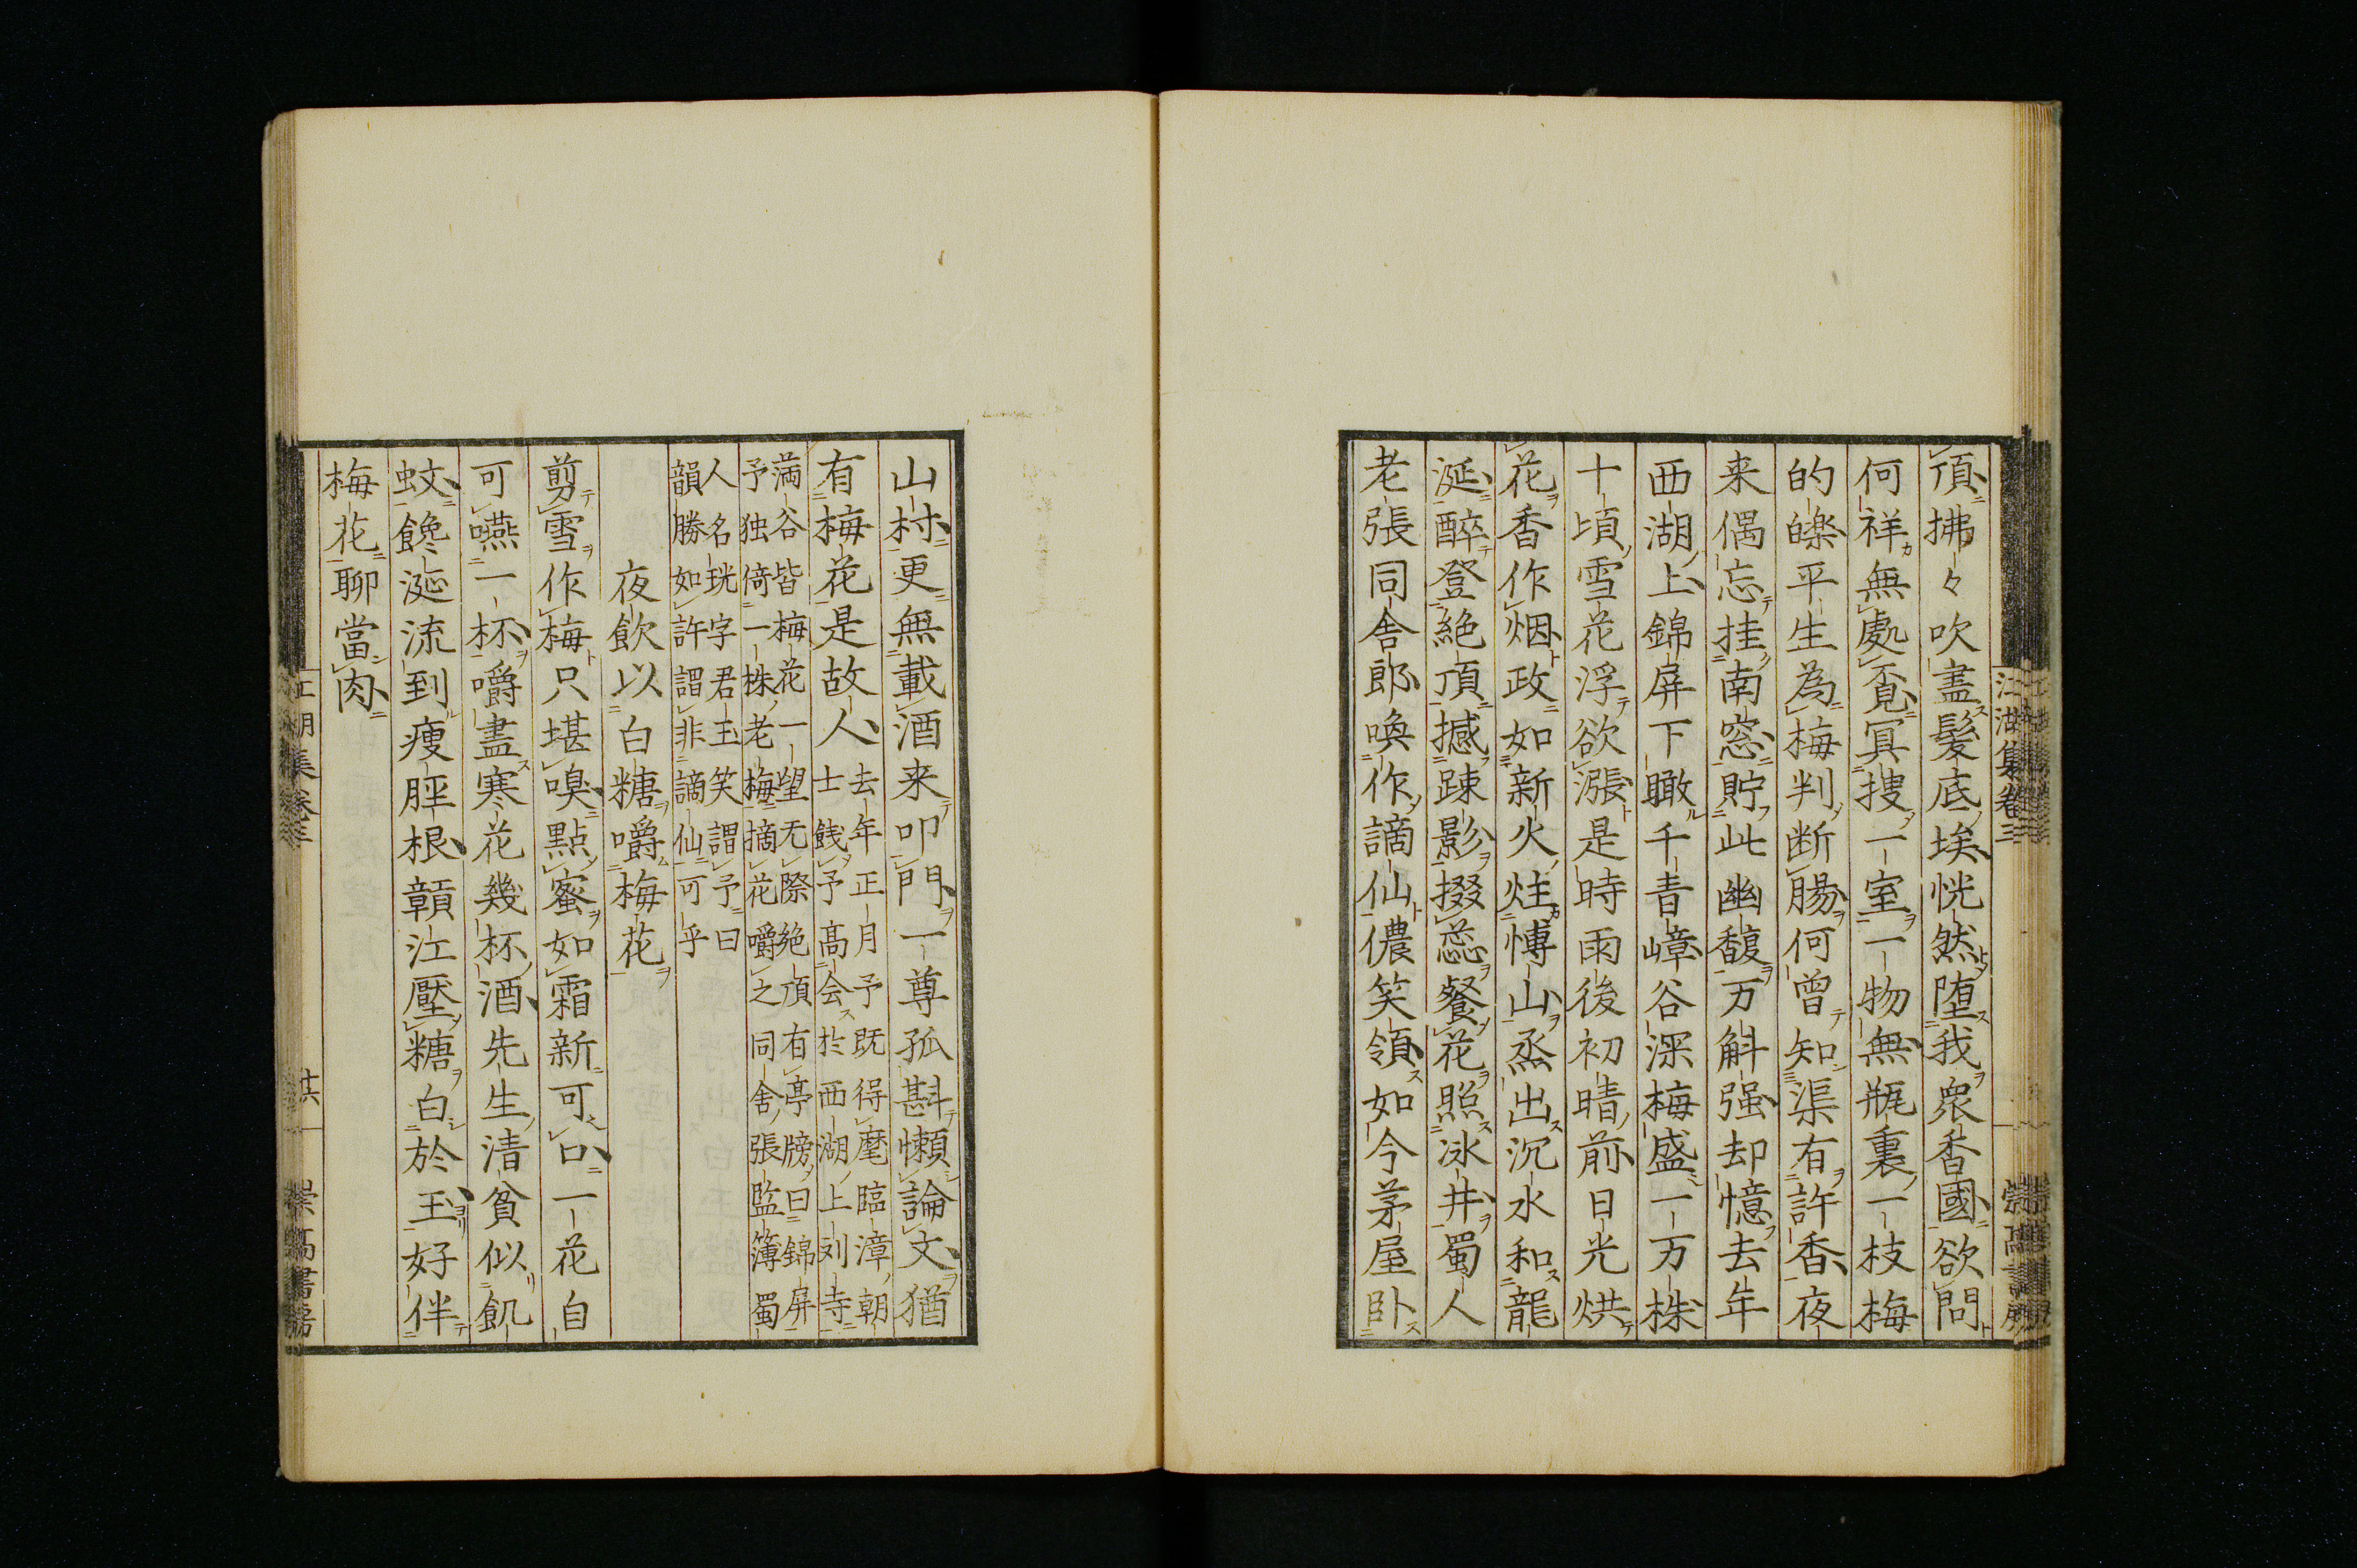 頂拂々吹盡髮底埃恍然堕我衆香國欲問
何祥無處覓冥搜一室一物無瓶裏一枝梅
的皪平生為梅判断腸何曽知渠有許香夜
来偶忘挂南窓貯此幽馥万斛强却憶去年
西湖上錦屏下瞰千青嶂谷深梅盛一万株
十頃雪花浮欲漲是時雨後初晴前日光烘
花香作烟政如新火炷愽山烝出沉水和龍
涎醉登絶頂撼踈影掇蕊餐花照冰井蜀人
老張同舎郎喚作謫仙儂笑領如今茅屋卧
江湖集卷三
山村更無載酒来叩門一尊孤斟懶論文猶
有梅花是故人
去年正月予既得麾臨漳朝
士餞予髙会於西湖上刘寺
満谷皆梅花一望无際絶頂有亭牓曰錦屏
予独倚一株老梅摘花嚼之同舎張監簿蜀
人名珖字君玉笑謂予曰
韻勝如許謂非謫仙可乎
夜飲以白糖嚼梅花
剪雪作梅只堪嗅點蜜如霜新可口一花自
可嚥一杯嚼盡寒花幾杯酒先生清貧似飢
蚊饞涎流到瘦脛根贛江壓糖白於玉好伴
梅花聊當肉
江湖集卷三
十六